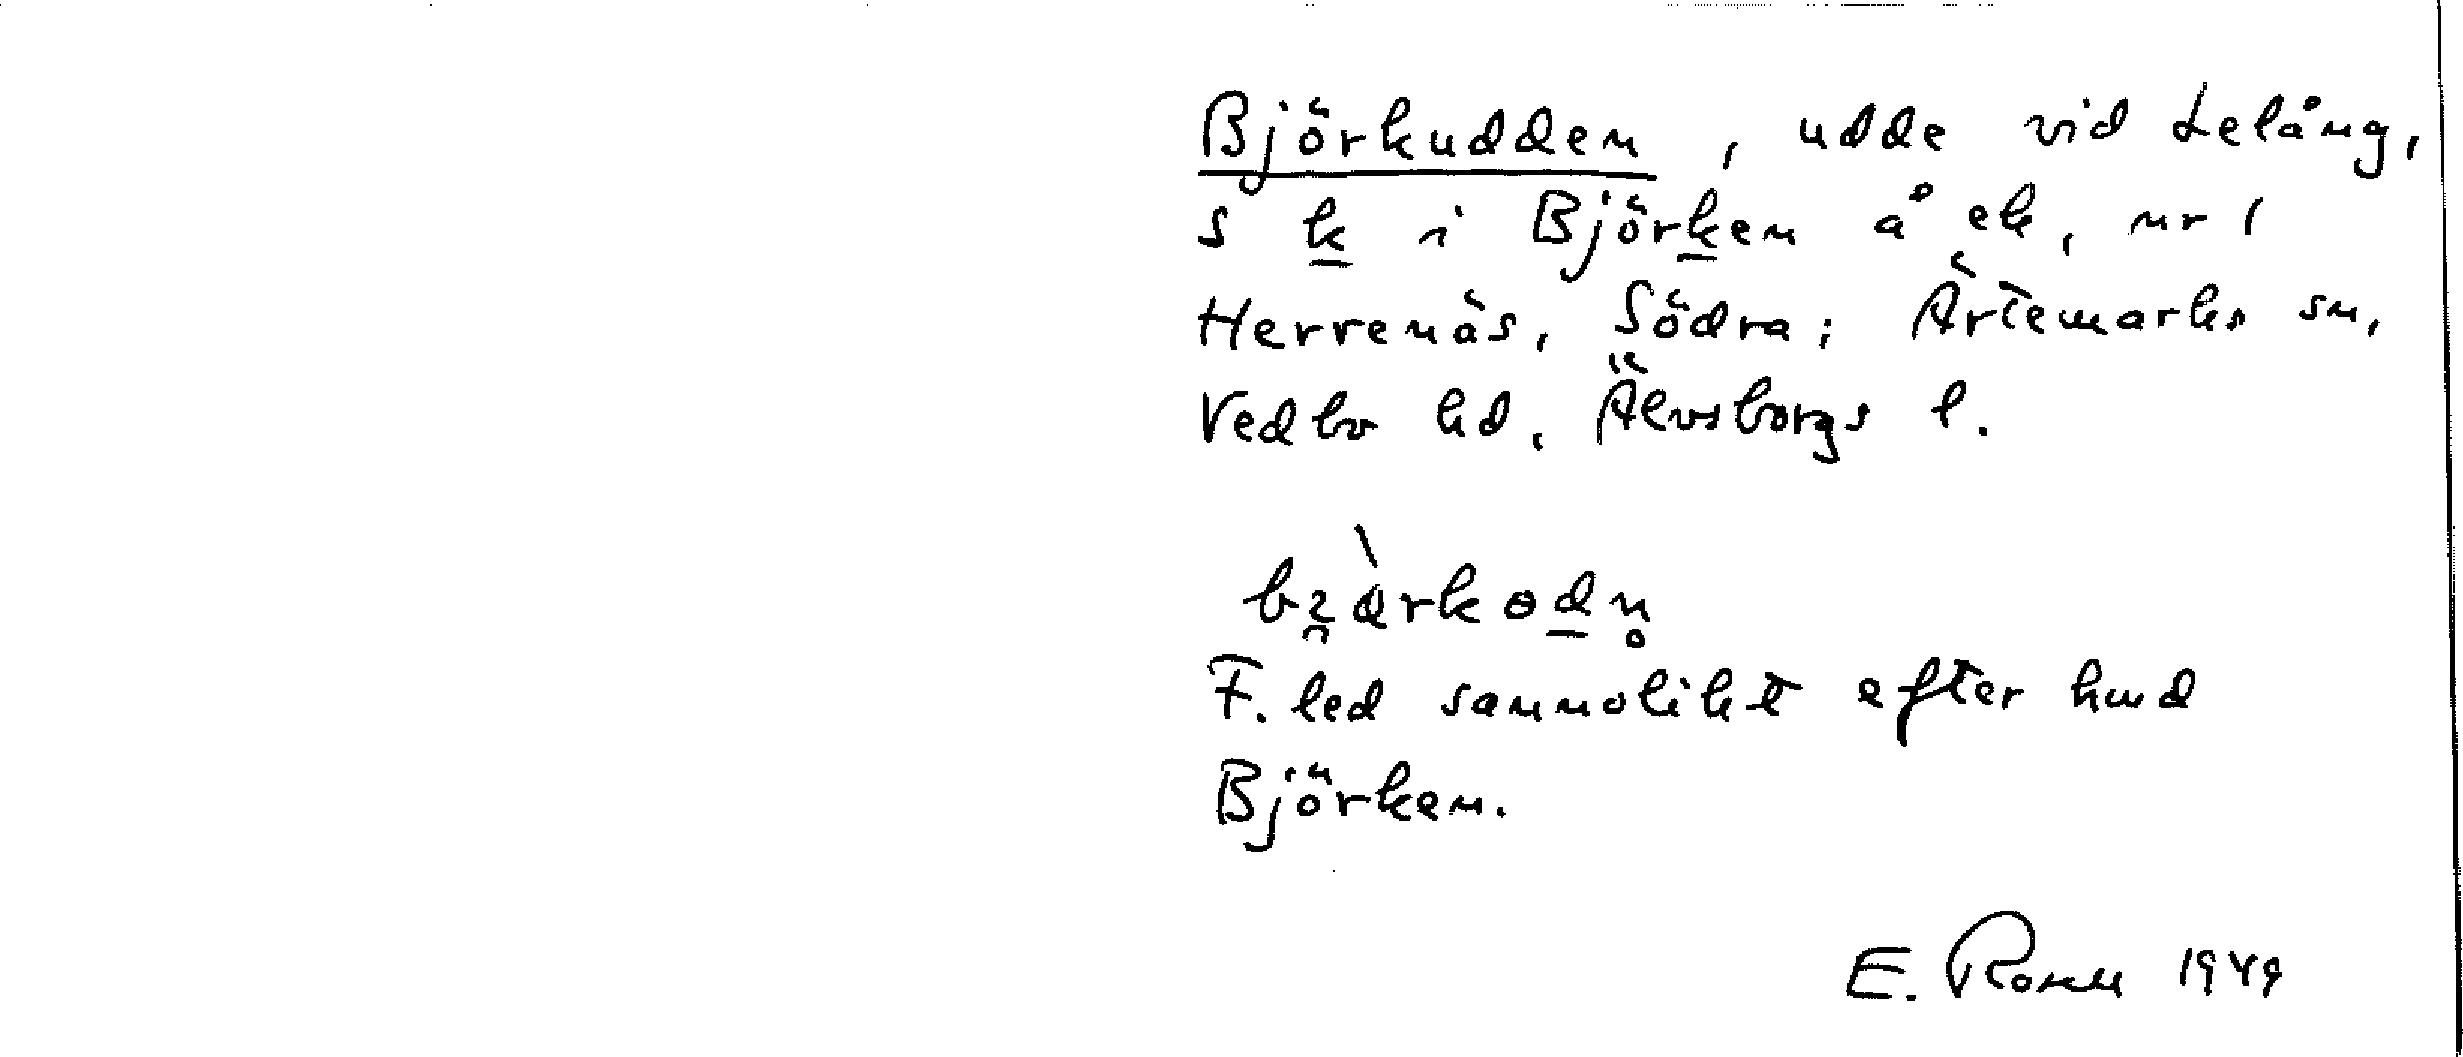 Björkudden, udde vid Lelång,
s k i Björken å ek, nr 1
Herrenäs, Södra; Ärtemarks sn,
Vedbo hd, Älvsborgs l.
F. led sannolikt efter hmd
Björken.
E. Rosell 1949